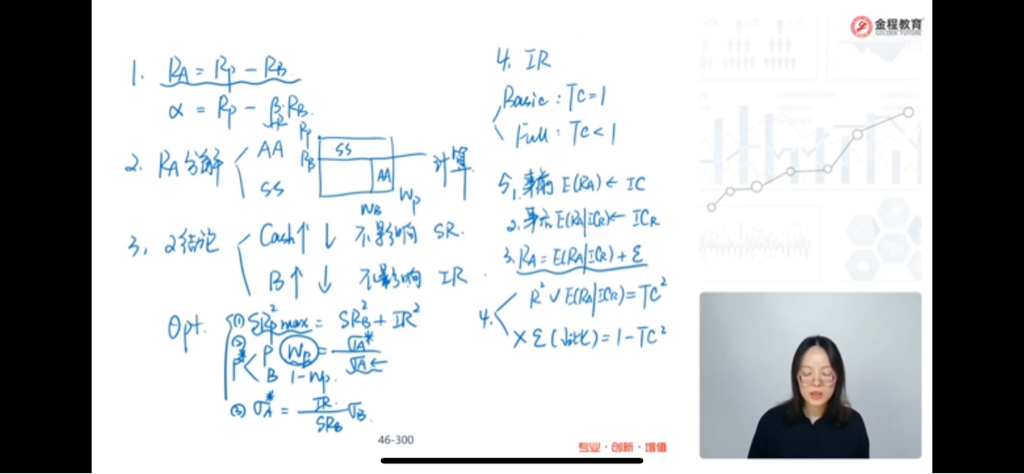 金程教育
GOLDEN FUTURE
1. RA = Rp - RB.
α = Rp - βp RB.
2. RA分解 AA SS
Rp
RB
SS
AA
WB Wp
计算
3. 2结论 Cash↑↓ 不影响 SR.
B↑↓ 不影响 IR.
Opt. ① SRp²max = SRB² + IR²
② P* P Wp = σA* / σA ←
B 1-Wp.
③ σA* = IR / SRB σB.
4. IR
Basic: TC=1
Full: TC<1
5, 1. 事前 E(RA) ← IC
2. 事后 E(RA|ICR) ← ICR
3. RA = E(RA|ICR) + ε
4. R² √ E(RA|ICR) = TC²
× ε (占比) = 1 - TC²
46-300
专业·创新·增值